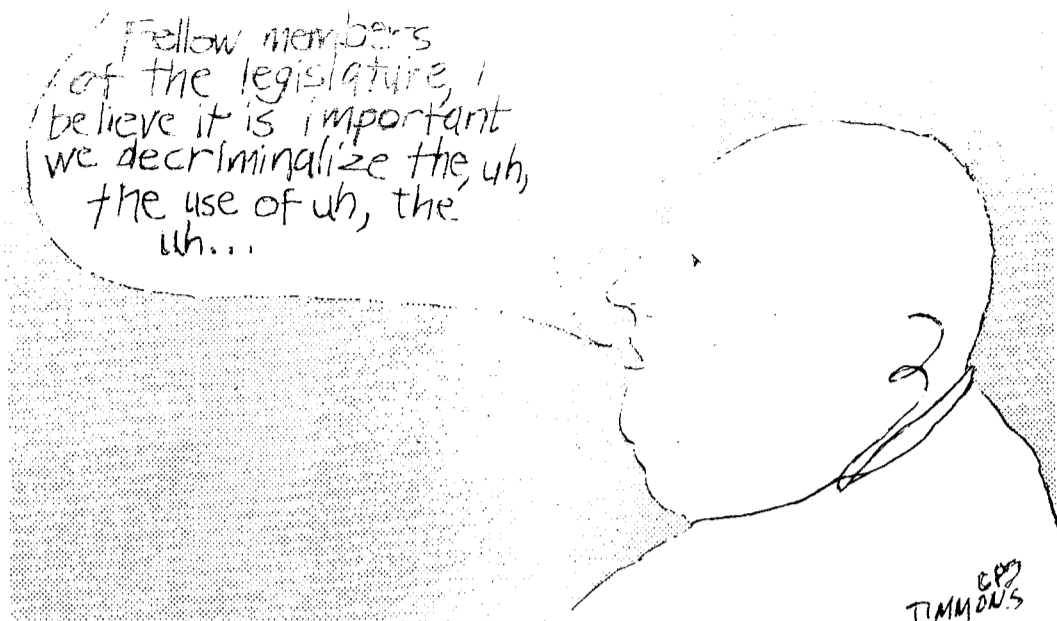 Fellow members
of the legislature, I
believe it is important
we decriminalize the, uh,
the use of uh, the
uh...
TIMMONS